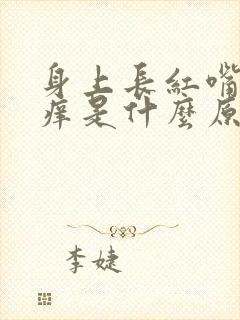 身上長紅嘴
痒是什麼原
李婕